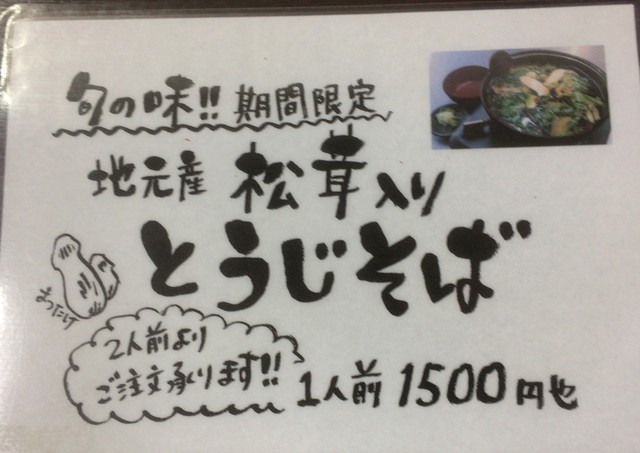 旬の味!! 期間限定
地元産 松茸入り
とうじそば
まつたけ
2人前より
ご注文承ります!!
1人前 1500円也